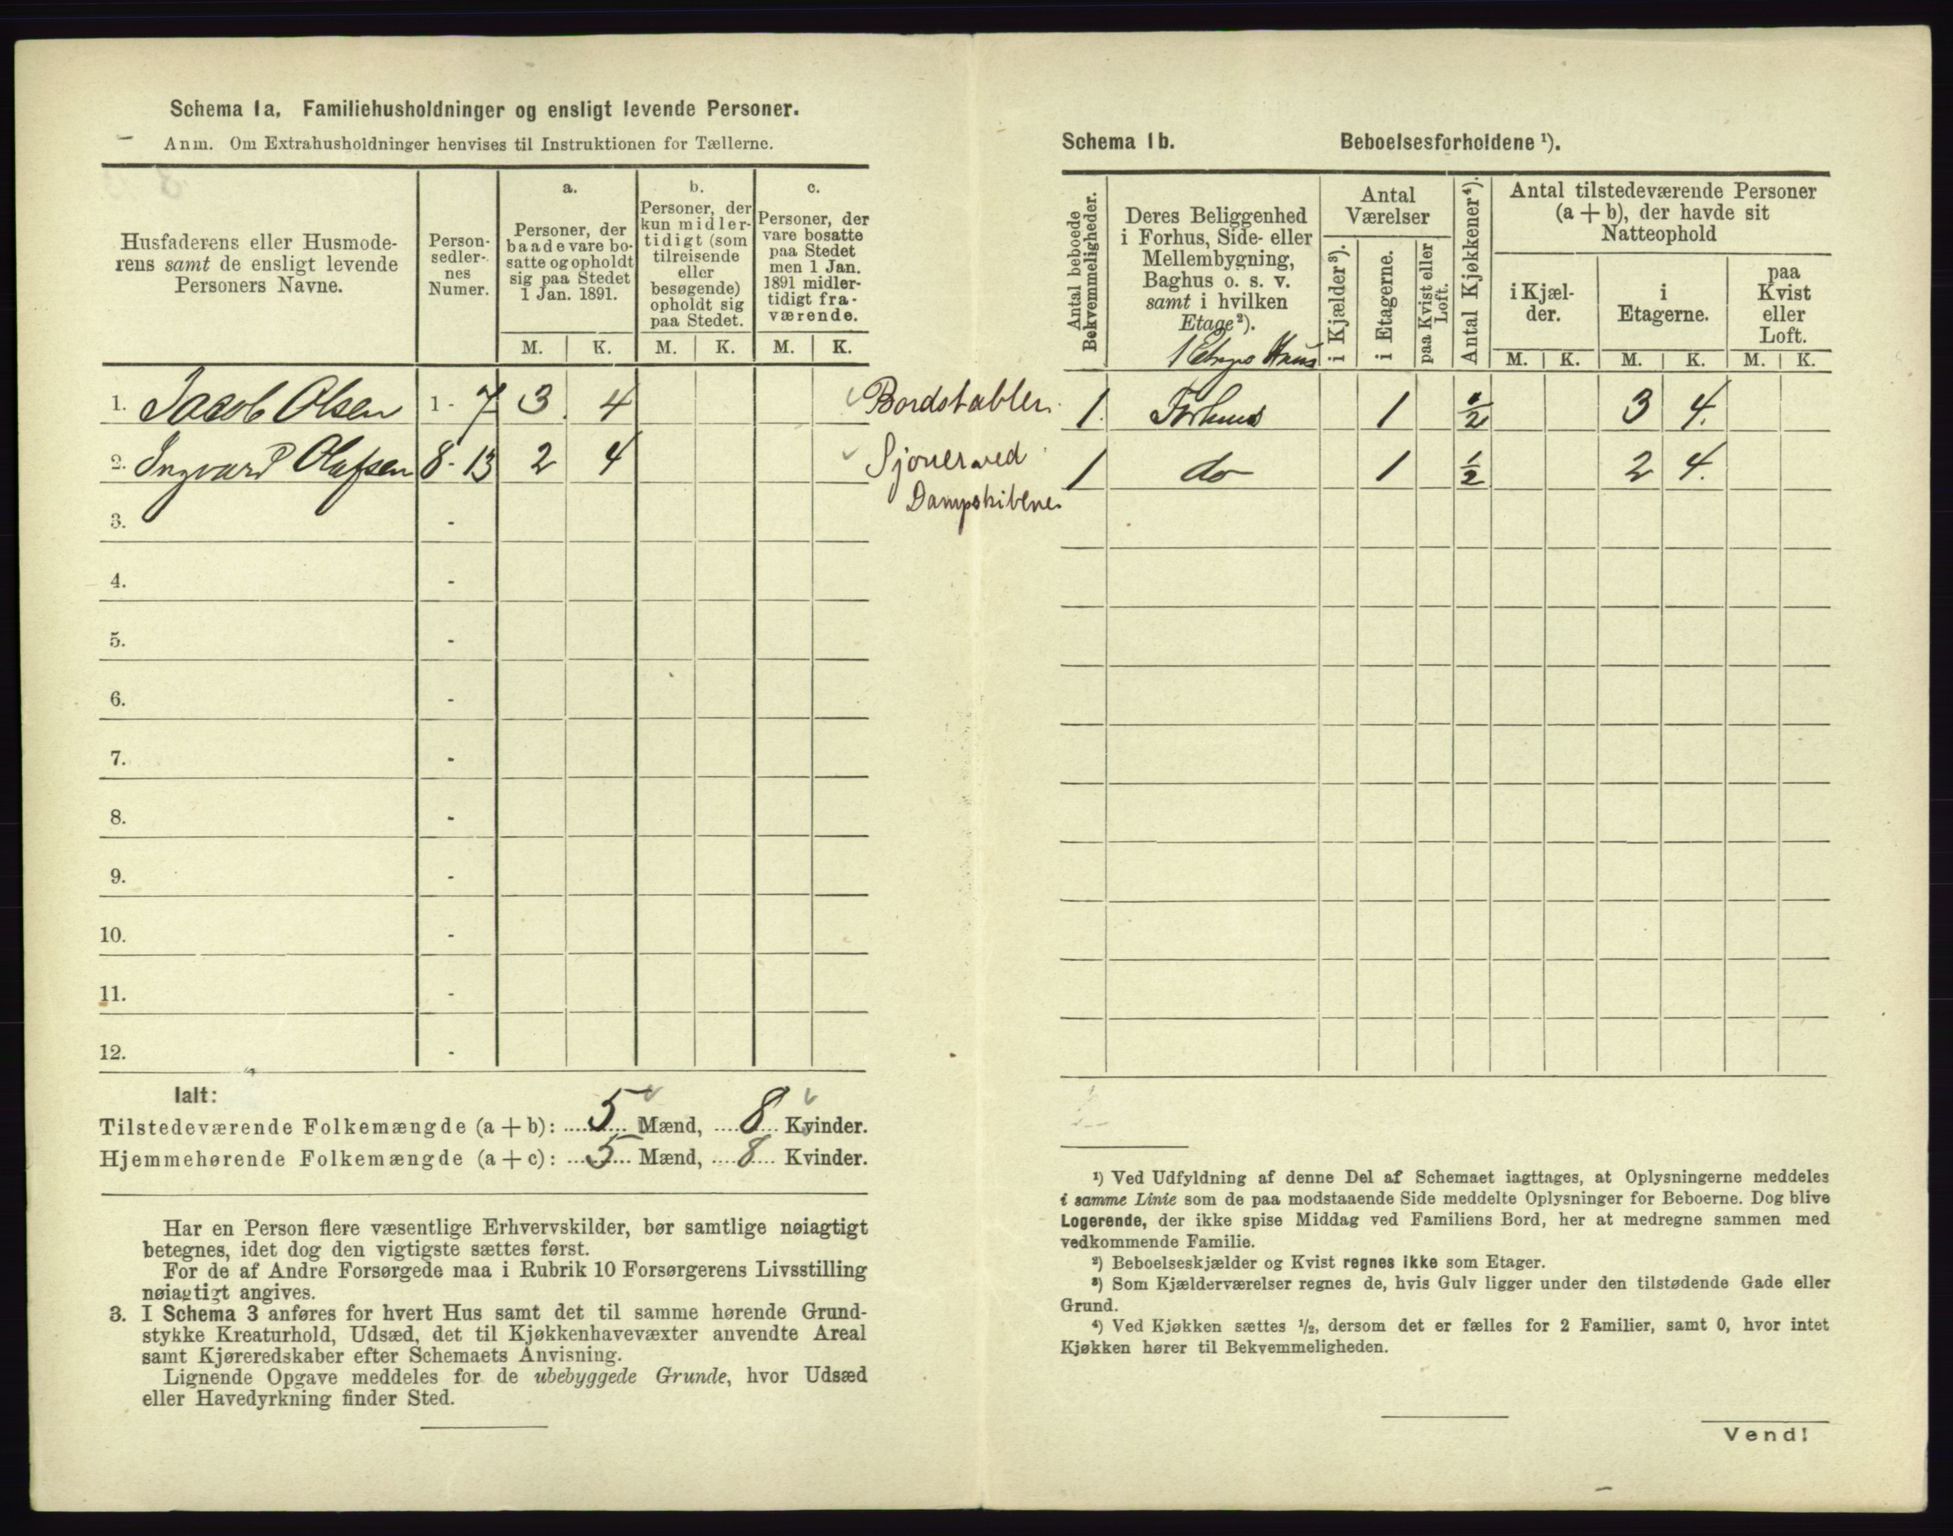 Schema 1a. Familiehusholdninger og ensligt levende Personer.
Anm. Om Extrahusholdninger henvises til Instruktionen for Tællerne.
Husfaderens eller Husmode-
rens samt de ensligt levende
Personers Navne.
Person-
sedler-
nes
Numer.
a.
Personer, der
baade vare bo-
satte og opholdt
sig paa Stedet
1 Jan. 1891.
b.
Personer, der
kun midler-
tidigt (som
tilreisende
eller
besøgende)
opholdt sig
paa Stedet.
c.
Personer, der
vare bosatte
paa Stedet
men 1 Jan.
1891 midler-
tidigt fra-
værende.
M. K. M. K. M. K.
1. Jacob Olsen 1 - 7 3 4 Bordstabler
2. Ingvard Olafsen 8 - 13 2 4 Sjouer ved
Dampskibene
3. -
4. -
5. -
6. -
7. -
8. -
9. -
10. -
11. -
12. -
Ialt:
Tilstedeværende Folkemængde (a + b): 5 Mænd, 8 Kvinder.
Hjemmehørende Folkemængde (a + c): 5 Mænd, 8 Kvinder.
Har en Person flere væsentlige Erhvervskilder, bør samtlige nøiagtigt
betegnes, idet dog den vigtigste sættes først.
For de af Andre Forsørgede maa i Rubrik 10 Forsørgerens Livsstilling
nøiagtigt angives.
3. I Schema 3 anføres for hvert Hus samt det til samme hørende Grund-
stykke Kreaturhold, Udsæd, det til Kjøkkenhavevæxter anvendte Areal
samt Kjøreredskaber efter Schemaets Anvisning.
Lignende Opgave meddeles for de ubebyggede Grunde, hvor Udsæd
eller Havedyrkning finder Sted.
Schema 1b. Beboelsesforholdene ¹).
Antal beboede
Bekvemmeligheder.
Deres Beliggenhed
i Forhus, Side- eller
Mellembygning,
Baghus o. s. v.
samt i hvilken
Etage²).
1 Etages Huus
Antal
Værelser
i Kjælder³).
i Etagerne.
paa Kvist eller
Loft.
Antal Kjøkkener⁴).
Antal tilstedeværende Personer
(a + b), der havde sit
Natteophold
i Kjæl-
der.
i
Etagerne.
paa
Kvist
eller
Loft.
M. K. M. K. M. K.
1. Forhuus 1 1/2 3 4.
1 do 1 1/2 2 4.
¹) Ved Udfyldning af denne Del af Schemaet iagttages, at Oplysningerne meddeles
i samme Linie som de paa modstaaende Side meddelte Oplysninger for Beboerne. Dog blive
Logerende, der ikke spise Middag ved Familiens Bord, her at medregne sammen med
vedkommende Familie.
²) Beboelseskjælder og Kvist regnes ikke som Etager.
³) Som Kjælderværelser regnes de, hvis Gulv ligger under den tilstødende Gade eller
Grund.
⁴) Ved Kjøkken sættes ½, dersom det er fælles for 2 Familier, samt 0, hvor intet
Kjøkken hører til Bekvemmeligheden.
Vend!